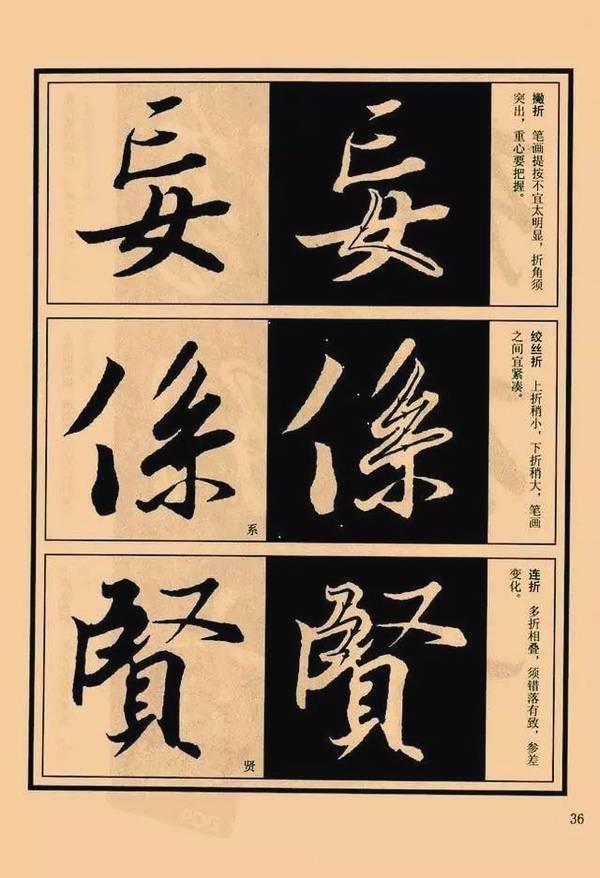 撇折　笔画提按不宜太明显，折角须
突出，重心要把握。
妄
妄
绞丝折　上折稍小，下折稍大，笔画
之间宜紧凑。
係
係
系
连折　多折相叠，须错落有致，参差
变化。
賢
賢
贤
36